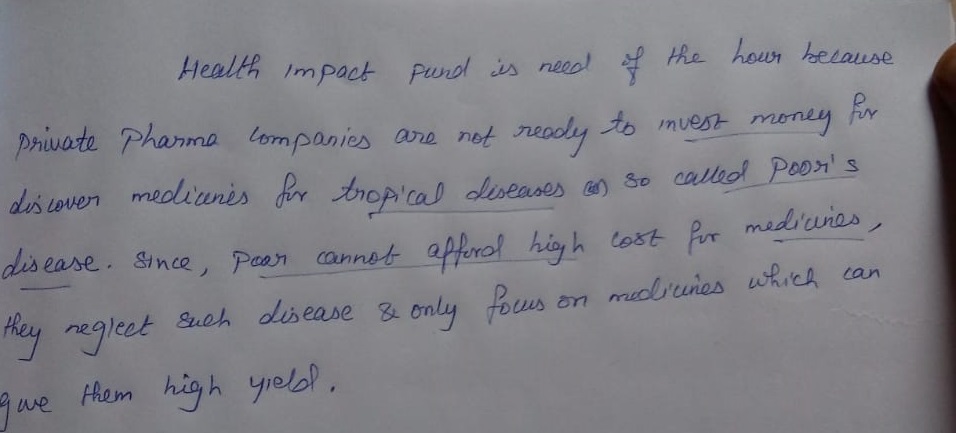 Health impact fund is need of the hour because
private Pharma Companies are not ready to invest money for
discover medicines for tropical diseases (or) so called Poor's
disease. Since, Poor cannot afford high cost for medicines,
they neglect such disease & only focus on medicines which can
give them high yield.